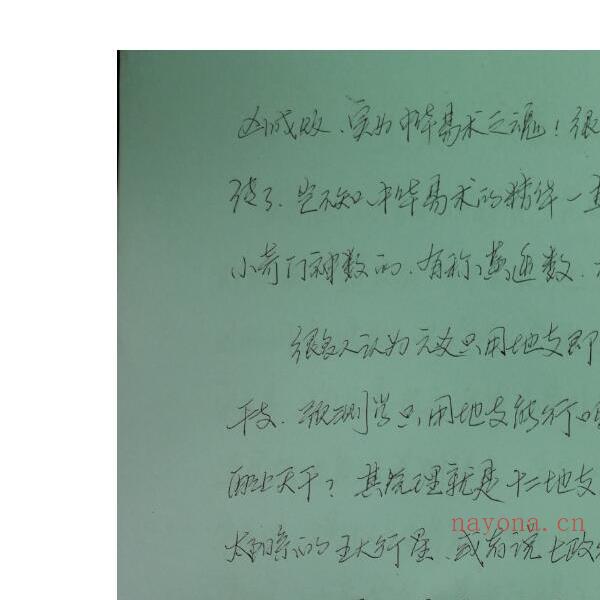 凶成败、实为中华易术之魂！很
传了、岂不知、中华易术的精华一直
小奇门神数的、有称遁数、
很多人认为只用地支即
干支、预测学只用地支能行吗
天干？其原理就是十二地支
nayona.cn
太阳系的五大行星、或者说七政